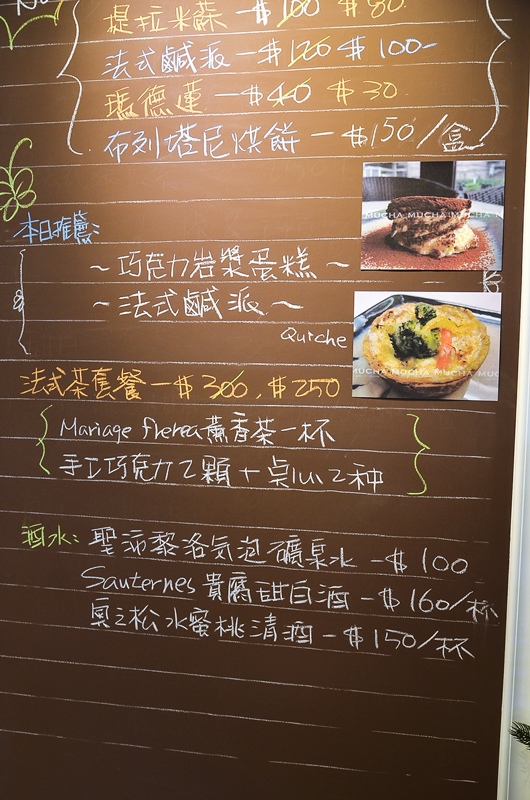 No
提拉米蘇 — $100 $80.
法式鹹派 — $120 $100-
瑪德蓮 — $40 $30.
布列塔尼烘餅 — $150/盒
MUCHA MUCHA MUCHA
本日推薦:
~巧克力岩漿蛋糕~
&
~法式鹹派~
Quiche
MUCHA MUCHA MUCHA MUC
法式茶套餐 — $300, $250
Mariage frerea 薰香茶一杯
手工巧克力2顆 + 桌心2种
酒水: 聖沛黎洛気泡礦泉水 — $100
Sauternes 貴腐甜白酒 — $160/杯
奥之松水蜜桃清酒 — $150/杯